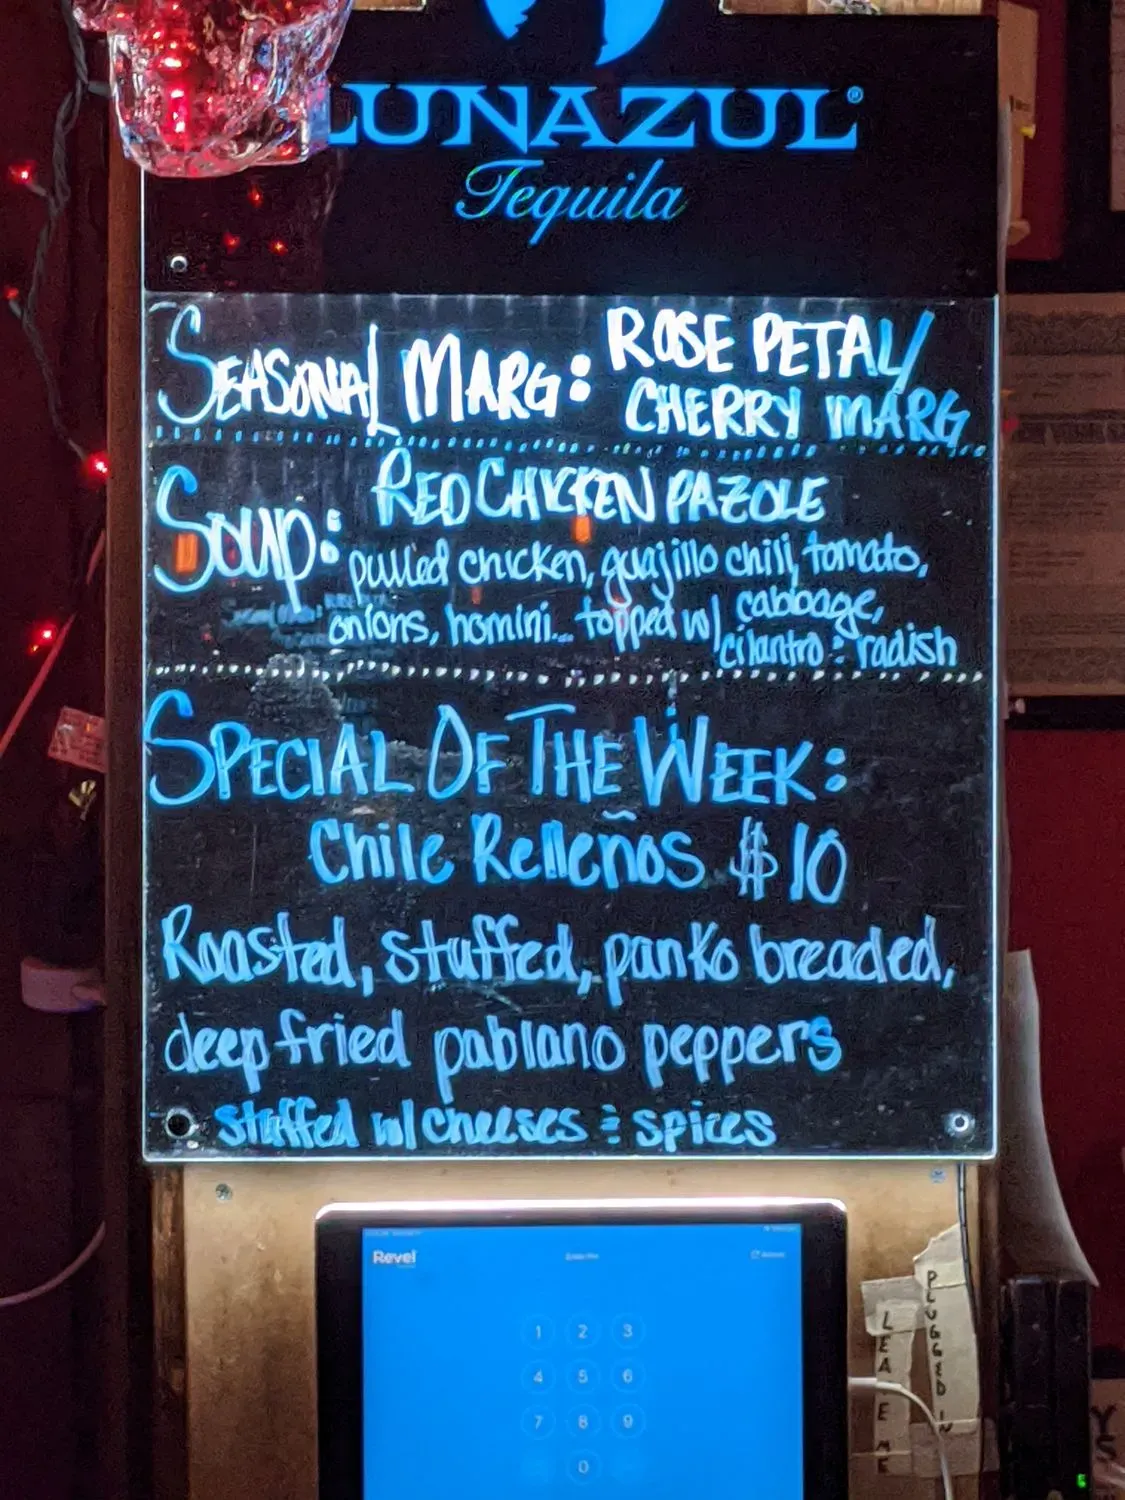 LUNAZUL®
Tequila
SEASONAL MARG: ROSE PETAL/
CHERRY MARG
SOUP: RED CHICKEN PAZOLE
pulled chicken, guajillo chili, tomato,
onions, homini... topped w/ cabbage,
cilantro & radish
SPECIAL OF THE WEEK:
Chile Relleños $10
Roasted, stuffed, panko breaded,
deep fried pablano peppers
stuffed w/ cheeses & spices
Revel
1 2 3
4 5 6
7 8 9
0
LEAVE ME
PLUGGED IN